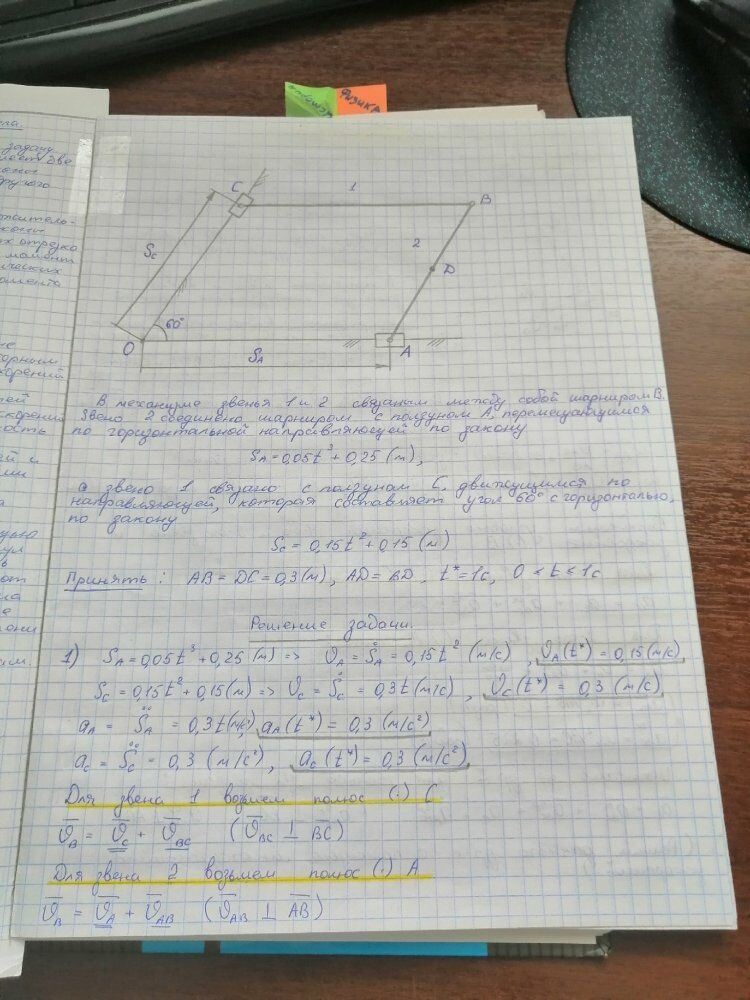 Физика
ела.
задачу
другого
отрезка
момент
ческих
момента
C
1
B
Sc
2
D
60°
O
SA
A
В механизме звенья 1 и 2 связаным между собой шарниром B.
Звено 2 соединено шарниром с ползуном A, перемещающимся
по горизонтальной направляющей по закону
SA = 0,05t³ + 0,25 (м),
а звено 1 связано с ползуном C, движущимся по
направляющей, которая составляет угол 60° с горизонталью,
по закону
Sc = 0,15t² + 0,15 (м)
Принять: AB = DC = 0,3 (м), AD = BD, t* = 1с, 0 ≤ t ≤ 1с
Решение задачи.
1) SA = 0,05t³ + 0,25 (м) => υA = ṠA = 0,15t² (м/с), υA(t*) = 0,15 (м/с)
Sc = 0,15t² + 0,15 (м) => υc = Ṡc = 0,3t (м/с), υc(t*) = 0,3 (м/с)
aA = S̈A = 0,3t (м/с²), aA(t*) = 0,3 (м/с²)
ac = S̈c = 0,3 (м/с²), ac(t*) = 0,3 (м/с²)
Для звена 1 возьмем полюс (·) C
ῡB = ῡC + ῡBC (ῡBC ⊥ B̅C̅)
Для звена 2 возьмем полюс (·) A
ῡB = ῡA + ῡAB (ῡAB ⊥ A̅B̅)